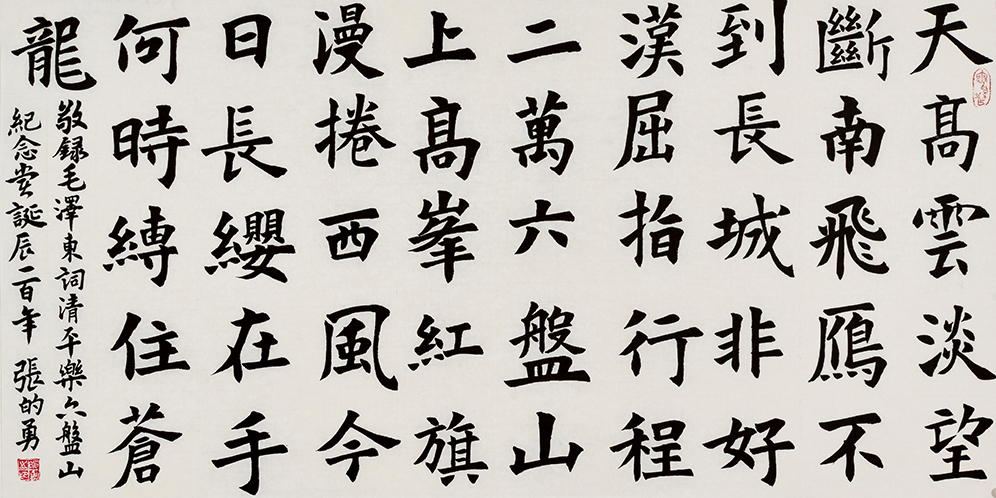 天髙雲淡望
斷南飛鴈不
到長城非好
漢屈指行程
二萬六盤山
上髙峯紅旗
漫捲西風今
日長纓在手
何時縛住蒼
龍
敬録毛澤東詞清平樂六盤山
紀念党誕辰一百年 張的勇